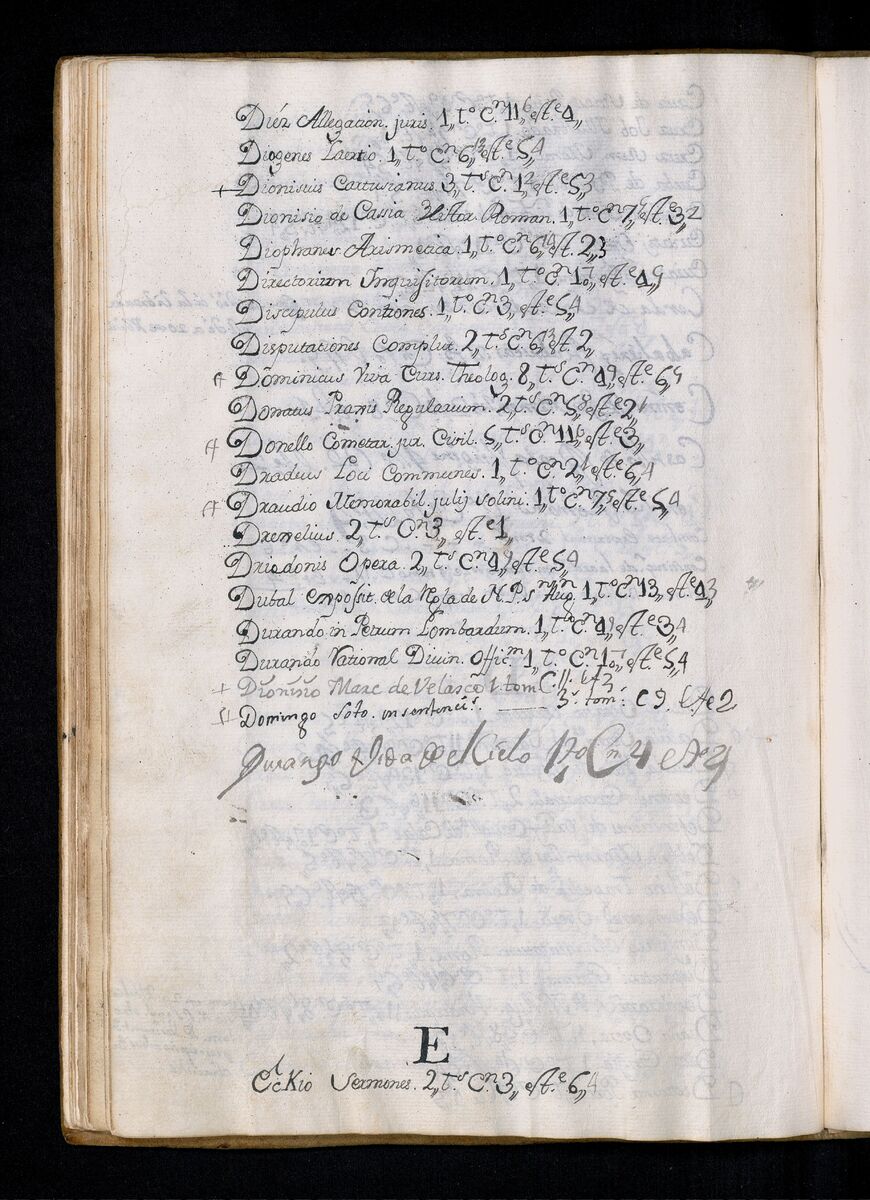 Diéz Allegacion. juris. 1,, t.o C.n 11,,6 est.e 4,,
Diogenes Laertio. 1,, t.o C.n 6,,13 est.e 5,,4
+ Dionisius Cartusianus. 3,, t.s C.n 12,, est.e 5,,3
Dionisio de Cassia Histor. Roman. 1,, t.o C.n 7,, est.e 3,,2
Diophanes Arismetica. 1,, t.o C.n 6,, est. 2,,3
Directorium Inquisitorum. 1,, t.o C.n 1,, est.e 4,,9
Discipulus Contiones. 1,, t.o C.n 3,, est.e 5,,4
Disputationes Complut. 2,, t.s C. 6,,3 est. 2,,
A Dominicus Viva Curs. Theolog. 8,, t.s C.n 4,,9 est.e 6,,4
Donatus Praxis Regularium. 2,, t.s C.n 5,,8 est.e 2,,
A Donello Cometar. jur. Civil. 5,, t.s C.n 11,,6 est.e 3,,
Dradeus Loci Communes. 1,, t.o C.n 2,, est.e 6,,4
A Draudio Memorabil. julij solini. 1,, t.o C.n 7,,5 est.e 5,,4
Drexelius. 2,, t.s C.n 3,, est.e 1,,
Driedonis Opera. 2,, t.s C.n 4,,9 est.e 5,,4
Dubal exposit. de la Regla de N. P. S.n Aug.n 1,, t.o C.n 13,, est.e 4,,3
Durando in Petrum Lombardum. 1,, t.o C.n 4,,9 est.e 3,,4
Durando Rational Divin. Offic.m 1,, t.o C.n 1,, est.e 5,,4
+ Dionisio Marc de Velasco 1. tom C. 11.
Domingo Soto. in sentenci.s 3. tom.s C 9. Est e 2
Durango Vida de Kielo 1 to Cn 4 est 4
E
Eckio Sermones. 2,, t.s C.n 3,, est.e 6,,4